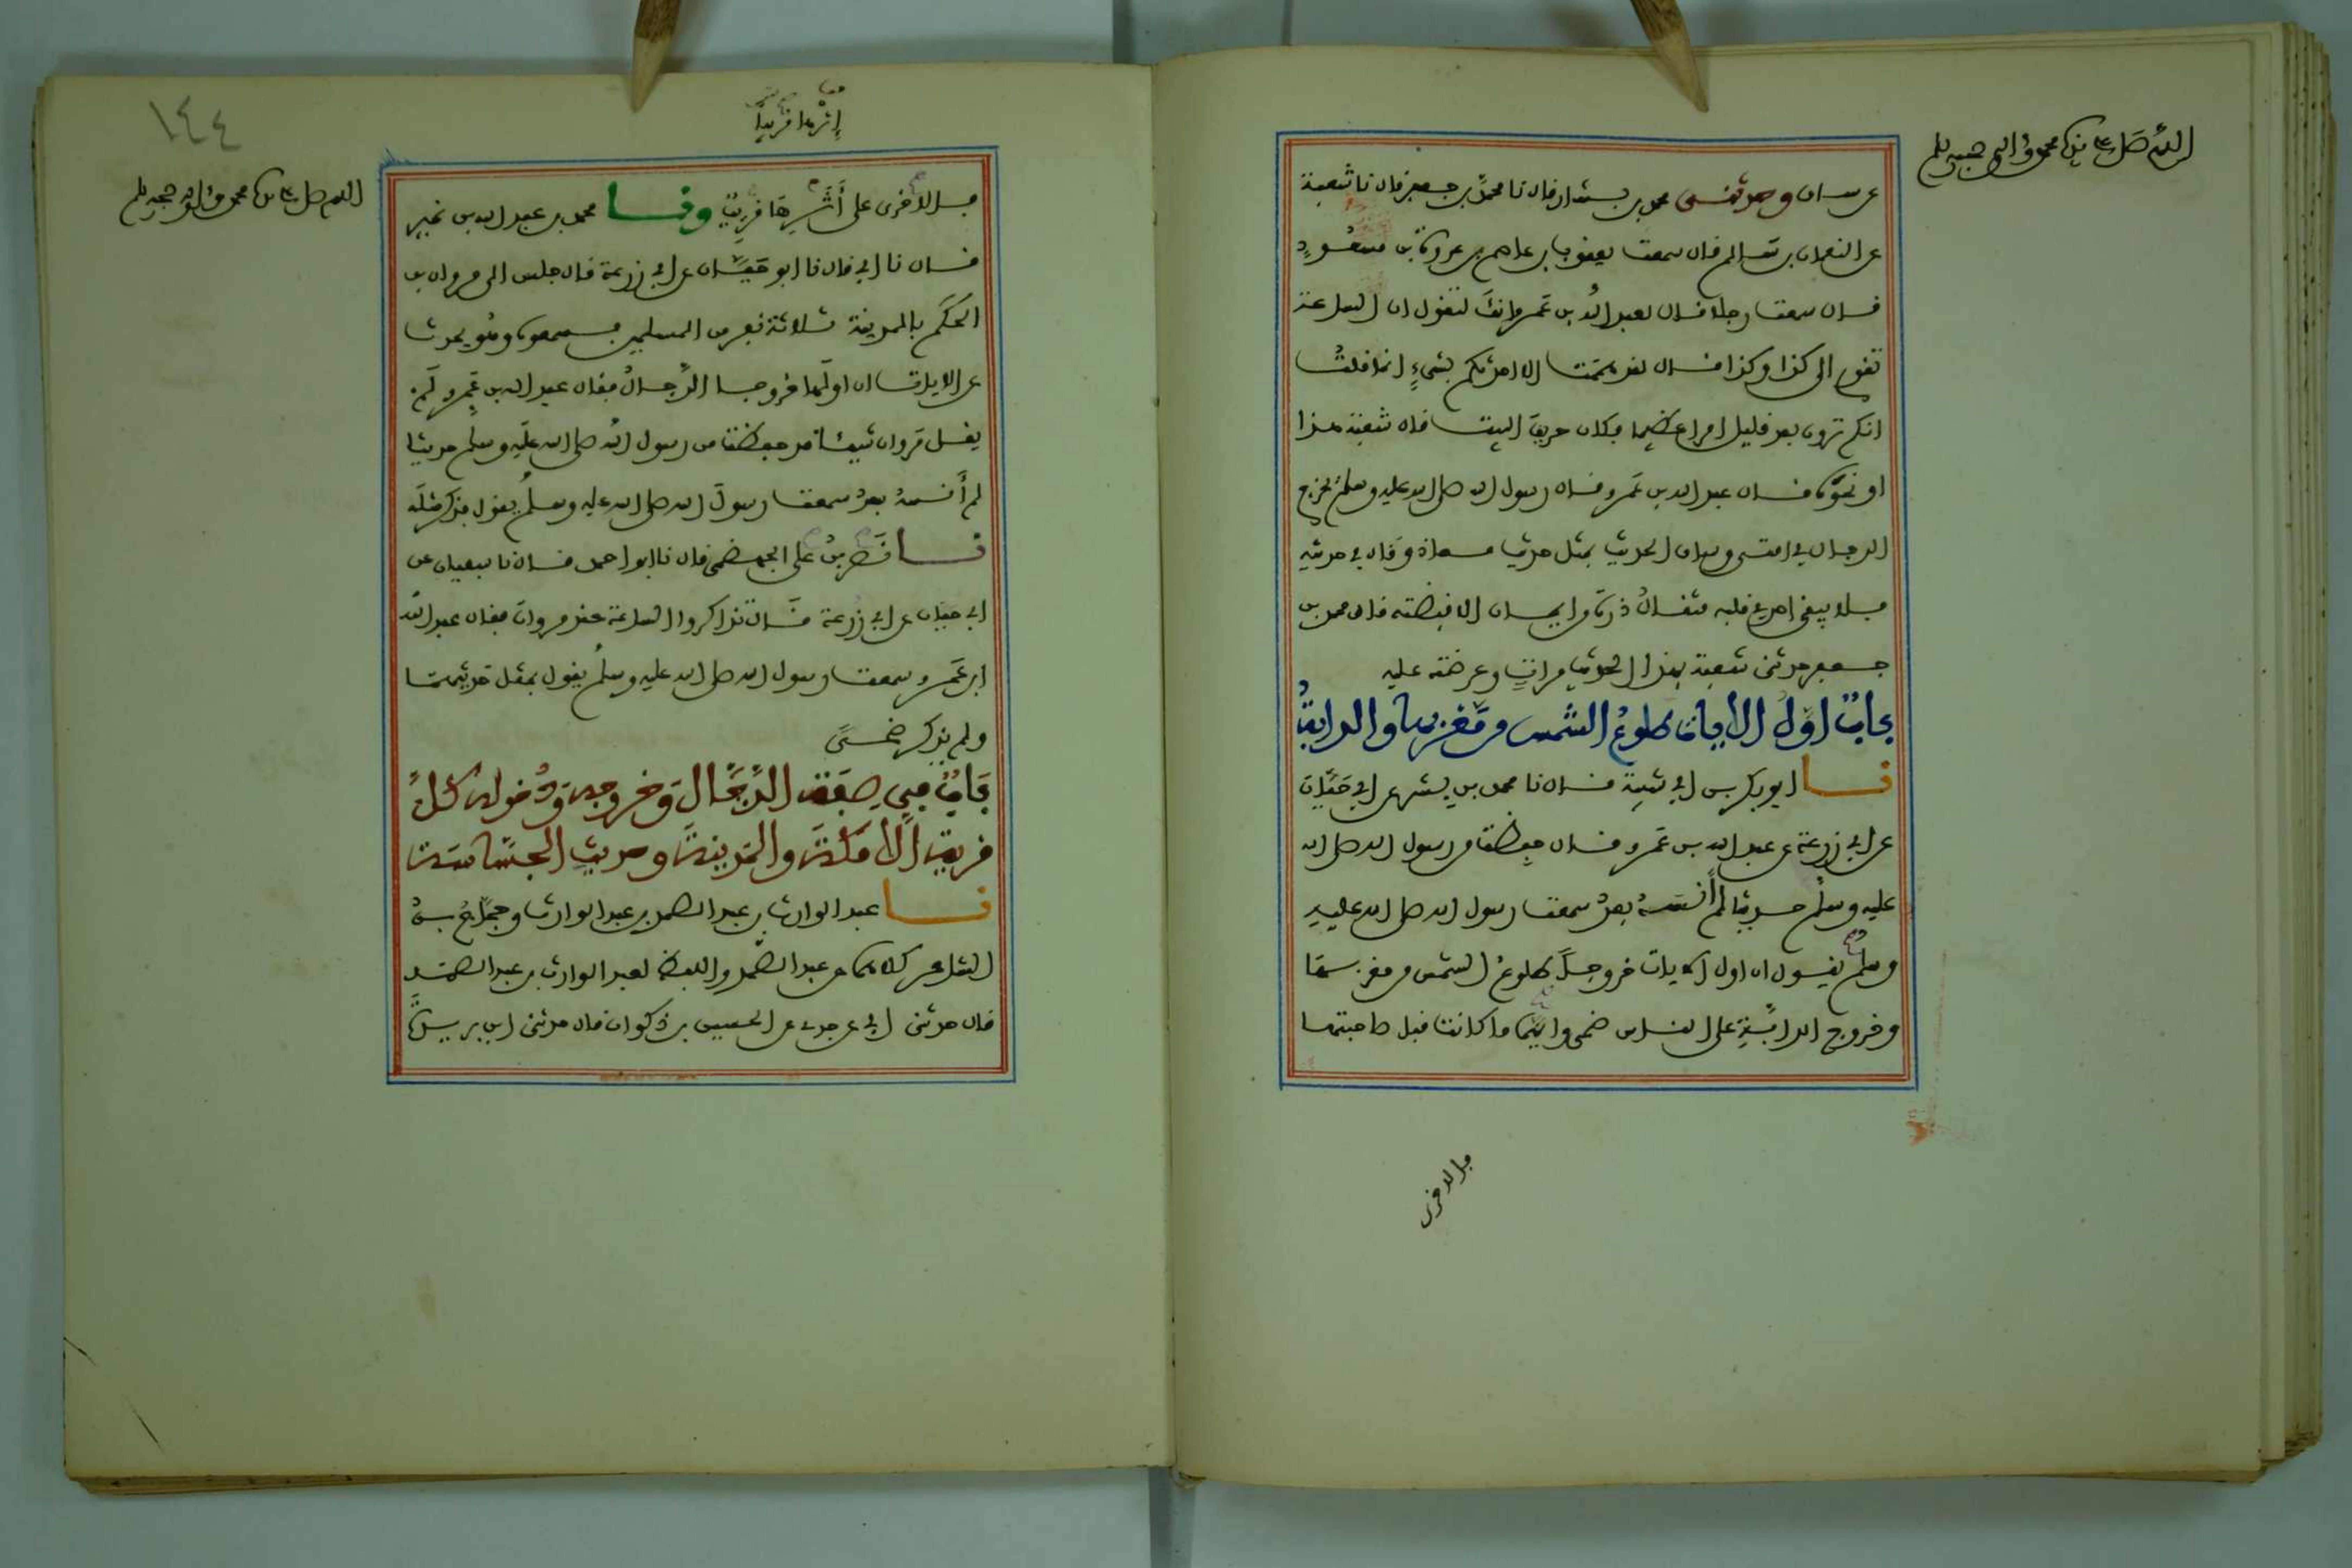 اللهم صل على سيدنا محمد وءاله وصحبه وسلم
عرسان وحدثنى محمد بن بشار قال نا محمد بن جعفر قال نا شعبة
عن النعمان بن سالم قال سمعت يعقوب بن عاصم بن عروة بن مسعود
قال سمعت رجلا قال لعبد الله بن عمرو انك لتقول ان الساعة
تقوم الى كذا وكذا قال لقد هممت الا احدثكم بشيء انما قلت
انكم ترون بعد قليل امرا عظيما فكان حريق البيت قال شعبة هذا
او نحوه قال عبد الله بن عمرو قال رسول الله صلى الله عليه وسلم يخرج
الدجال في امتى وساق الحديث بمثل حديث معاذ وقال في حديثه
فلا يبقى احد في قلبه مثقال ذرة من ايمان الا قبضته قال محمد بن
جعفر حدثنى شعبة بهذا الحديث مرات وعرضته عليه
باب اول الايات طلوع الشمس من مغربها والدابة
نا ابو بكر بن ابي شيبة قال نا محمد بن بشر عن ابي حيان
عن ابي زرعة عن عبد الله بن عمرو قال حفظت من رسول الله صلى الله
عليه وسلم حديثا لم أنسه بعد سمعت رسول الله صلى الله عليه
وسلم يقول ان اول الايات خروجا طلوع الشمس من مغربها
وخروج الدابة على الناس ضحى وايهما ما كانت قبل صاحبتها
فالاخرى
١٤٤
إثرها قريبا
اللهم صل على سيدنا محمد وءاله وصحبه وسلم
فالاخرى على أثرها قريبا ونا محمد بن عبد الله بن نمير
قال نا ابي قال نا ابو حيان عن ابي زرعة قال جلس الى مروان بن
الحكم بالمدينة ثلاثة نفر من المسلمين فسمعوه وهو يحدث
عن الايات ان اولها خروجا الدجال فقال عبد الله بن عمرو لم
يقل مروان شيئا قد حفظت من رسول الله صلى الله عليه وسلم حديثا
لم أنسه بعد سمعت رسول الله صلى الله عليه وسلم يقول فذكر مثله
نا نصر بن علي الجهضمى قال نا ابو احمد قال نا سفيان عن
ابي حيان عن ابي زرعة قال تذاكروا الساعة عند مروان فقال عبد الله
ابن عمرو سمعت رسول الله صلى الله عليه وسلم يقول بمثل حديثهما
ولم يذكر ضحى
باب في صفة الدجال وخروجه ودخوله كل
قرية الا مكة والمدينة وحديث الجساسة
نا عبد الوارث بن عبد الصمد بن عبد الوارث وحجاج بن
الشاعر كلاهما عن عبد الصمد واللفظ لعبد الوارث بن عبد الصمد
قال حدثنى ابي عن جدى عن الحسين بن ذكوان قال حدثنى ابن بريدة